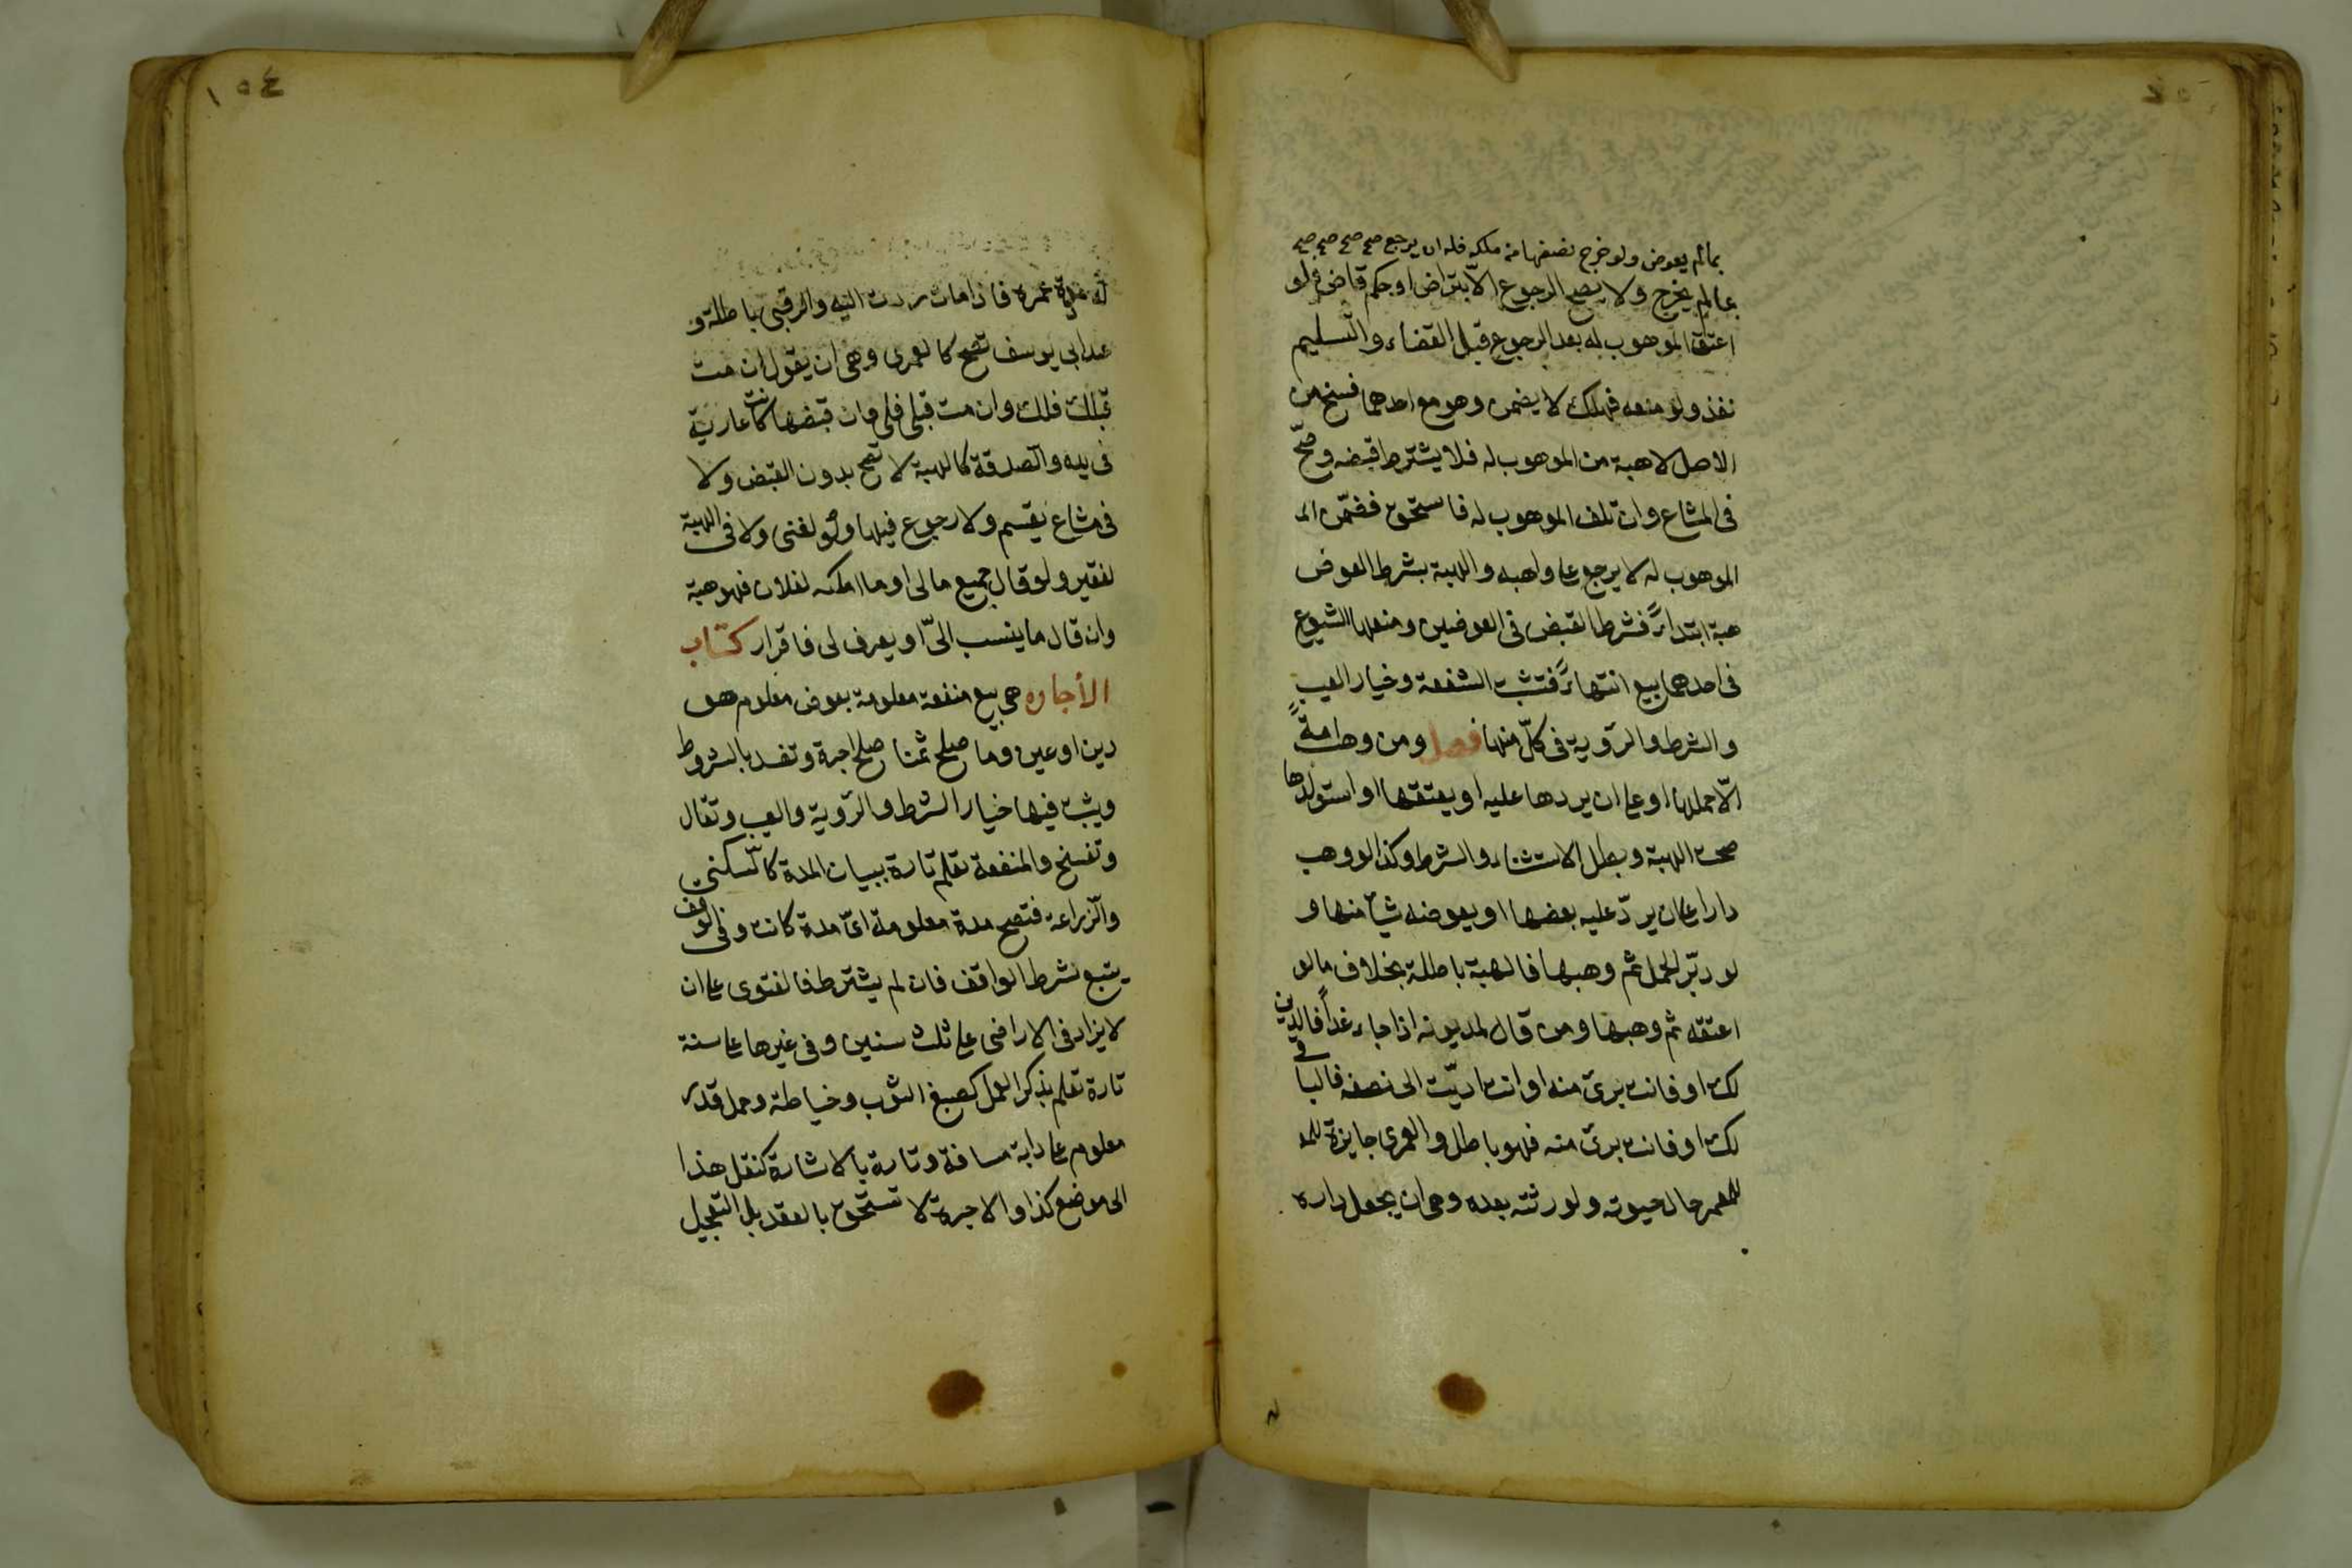 بمالم يعوض ولو خرج نصفها من ملكه فله ان يرجع صح صح صح صح
عالم يخرج ولا يصح الرجوع الّا بتراض او حكم قاض فلو
اعتق الموهوب له بعد الرجوع قبل القضاء والتّسليم
نفذ ولو منعه فهلك لا يضمن وهو مع احدهما فسخ من
الاصل لا هبة من الموهوب له فلا يشترط قبضه وصحّ
فى المشاع وان تلف الموهوب له فاستحق فضمّن الم
الموهوب له لا يرجع على واهبه والهبة بشرط العوض
هبة ابتداءً فشرط القبض فى العوضين ومنعها الشيوع
فى احدهما بيع انتهاءً فتثبت الشفعة وخيار العيب
والشرط والرّوية فى كلّ منها فصل ومن وهب امةً
الّا حملها او على ان يردها عليه او يعتقها او استولدها
صحت الهبة وبطل الاستثناء والشرط وكذا لو وهب
دارا على ان يردّ عليه بعضها او يعوضه شيأ منها و
لو دبّر الحمل ثم وهبها فالهبة باطلة بخلاف مالو
اعتقه ثم وهبها ومن قال لمديونه اذا جاء غداً فالدين
لك او فانت برئ منه او انت اديّت الى نصفه فالباقى
لك او فانت برئ منه فهو باطل والعمرى جايزة للم
للمعمر حال حيوته ولورثته بعده وهى ان يجعل داره
١٥٤
له مدة عمره فاذا مات ردت اليه والرقبى باطلة و
عند ابى يوسف تصح كالعمرى وهى ان يقول ان مت
قبلك فلك وان مت قبلى فلى فان قبضها كانت عارية
فى يده والصّدقة كالهبة لا تصح بدون القبض ولا
فى مشاع يقسم ولا رجوع فيها ولو لغنى ولا فى الهبة
لفقير ولو قال جميع مالى او ما املكه لفلان فهو هبة
وان قال ما ينسب الىّ او يعرف لى فاقرار كتاب
الأجاره هى بيع منفعة معلومة بعوض معلوم هو
دين او عين وما صلح ثمنا صلح اجرة وتفسد بالشروط
ويثبت فيها خيار الشرط والرّوية والعيب وتقال
وتفسخ والمنفعة تعلم تارة ببيان المدة كالسّكنى
والزّراعة فتصح مدة معلومة اىّ مدة كانت وفى الوقف
يتبع شرط الواقف فان لم يشترط فالفتوى على ان
لا يزاد فى الاراضى على ثلث سنين وفى غيرها على سنة
تارة تعلم بذكر العمل كصبغ الثوب وخياطة وحمل قدر
معلوم على دابة مسافة وتارة بالاشارة كنقل هذا
الى موضع كذا والاجرة لا تستحق بالعقد بل التعجيل